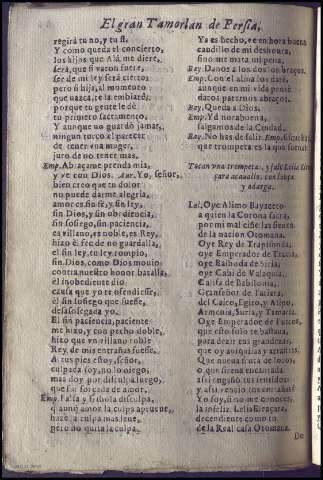 El gran Tamorlan de Persia.
regirà tu no, y tu si.
Y como queda el concierto,
los hijos que Alà me diere,
serà, que si varon fuere,
sea de mi ley será cierto:
pero si hija, al momento
que nazca, te la embiarè,
porque tu gente le dè
tu primero sacramento.
Y aunque no guardò jamas,
ningun turco al parecer
de tener vna muger,
juro de no tener mas.
Emp. Abraçame prenda mia,
y ve con Dios. Aur. Yo, señor,
bien creo que tu dolor
no puede darme alegria,
amor es sin fè, y sin ley,
sin Dios, y sin obediencia,
sin sosiego, sin paciencia,
es villano, es noble, es Rey,
hizo él fee de no guardalla,
el sin ley, tu ley rompiò,
sin Dios, como Dios mouio
contra nuestro honor batalla.
el inobediente dio
causa que yo te ofendiesse,
el sin sosiego que fuesse,
desasosegada yo.
El sin paciencia, paciente
me hizo, y con pecho doble,
hizo que vn villano noble
Rey, de mis entrañas fuesse.
A tus pies estoy, señor,
culpada soy, no lo niego,
mas doy por disculpa luego,
que fui forçada de amor.
Emp. Falsa, y friuola disculpa,
q aunq̃ amor la culpa
haze la culpa mas leue,
pero no quita la culpa.
Ya es hecho, ve en hora buena
caudillo de mi deshonra,
sino me mata mi pena.
Bay. Danos a los dos los braços.
Emp. Con el alma los darè,
aunque en mi vida pensè
datos paternos abraços.
Bay. Queda a Dios.
Emp. Yd norabuena,
salgamos de la Ciudad.
Bay. No has de salir. Emp.
que trompeta es la que suena?
Tocan vna trompeta, y sale Lelia Eleaçara
a cauallo, con lança
y adarga.
Lel. Oye Alimo Bayaceto
a quien la Corona sacra,
por mi mal ciñe las sienes
de la nacion Otomana.
Oye Rey de Trapisonda,
oye Emperador de Tracia,
oye Baiboda de Siria,
oye Cabi de Valaquia,
Califa de Babilonia,
Gran señor de Tartaria,
del Cairo, Egito, y Alipo,
Armenia, Suria, y Tamaria.
Oye Emperador de Turcos,
que esto solo te bastaua,
para dezir tus grandezas,
que oy aniquilas, y arrastras.
Que nueua fruta de locos,
o que sirena encantada
assi engañò tus sentidos
y assi
Yo soy, sino me conoces,
la infeliz Lelia Eleaçara,
decendiente como tu
de la Real casa Otomana.
De